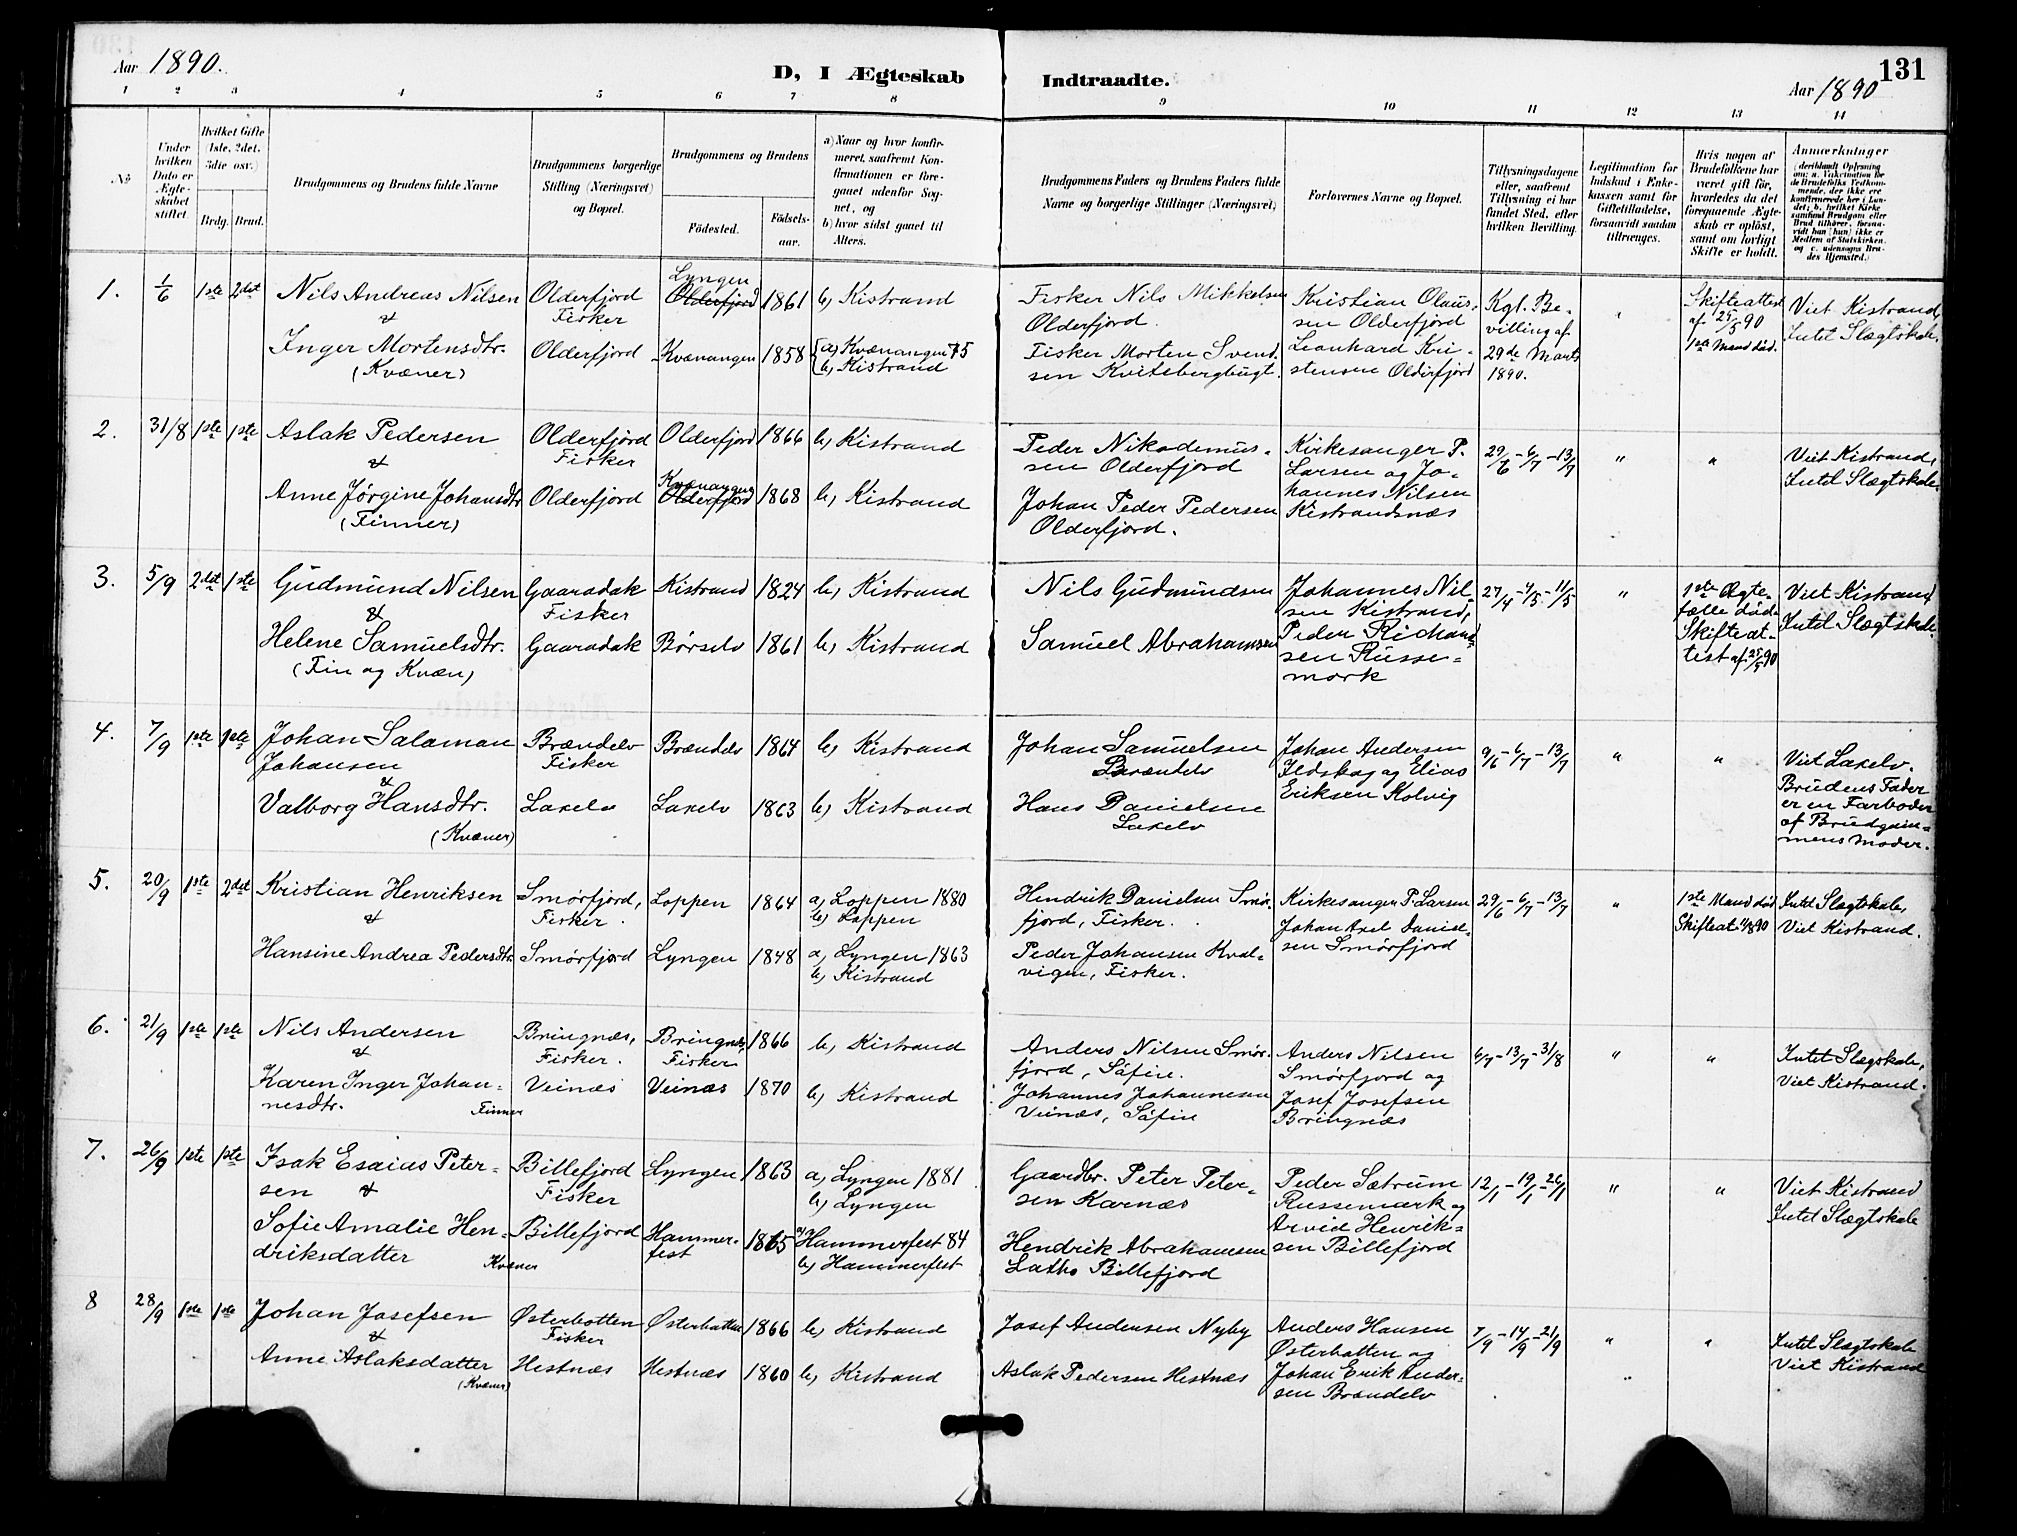 Aar 1890.
D, I Ægteskab Indtraadte.
131
Aar 1890
1 2 3 4 5 6 7 8 9 10 11 12 13 14
No
Under hvilken Dato er Ægteskabet stiftet.
Hvilket Gifte (1ste, 2det, 3die osv.)
Brdg. Brud.
Brudgommens og Brudens fulde Navne
Brudgommens borgerlige Stilling (Næringsvei) og Bopæl.
Brudgommens og Brudens
Fødested. Fødsels-aar.
a) Naar og hvor konfir-
meret, saafremt Kon-
firmationen er fore-
gaaet udenfor Sog-
net, og
b) hvor sidst gaaet til
Alters.
Brudgommens Faders og Brudens Faders fulde
Navne og borgerlige Stillinger (Næringsvei)
Forlovernes Navne og Bopæl.
Tillysningsdagene
eller, saafremt
Tillysning ei har
fundet Sted, efter
hvilken Bevilling.
Legitimation for
Indskud i Enke-
kassen samt for
Giftetilladelse,
forsaavidt saadan
tiltrænges.
Hvis nogen af
Brudefolkene har
været gift før,
hvorledes da det
foregaaende Ægte-
skab er opløst,
samt om lovligt
Skifte er holdt.
Anmærkninger
(deriblandt Oplysning
om: a. Vakcination for
de Brudefolks Vedkom-
mende, der ikke ere
konfirmerede her i Lan-
det; b. hvilket Kirke
samfund Brudgom eller
Brud tilhører, forsaa-
vidt han (hun) ikke er
Medlem af Statskirken,
og c. udensogns Bru-
des Hjemsted.)
1. 1/6 1ste 2det Nils Andreas Nilsen Olderfjord Fisker Lyngen Olderfjord 1861 b) Kistrand
& Inger Mortensdtr. (Kvæner) Olderfjord Kvænangen 1858 a) Kvænangen 75 b) Kistrand
Fisker Nils Mikkelsen Olderfjord.
Fisker Morten Svendsen Kvitebergbugt.
Kristian Olaussen Olderfjord Leonhard Kristensen Olderfjord
Kgl. Bevilling af 29de Marts 1890.
"
Skifteattest af 25/5 90 1ste Mand død.
Viet Kistrand, Intet Slægtskab.
2. 31/8 1ste 1ste Aslak Pedersen Olderfjord Fisker Olderfjord 1866 b) Kistrand
& Anne Jørgine Johansdtr. (Finner) Olderfjord Kvænangen Olderfjord 1868 b) Kistrand
Peder Nikodemussen Olderfjord
Johan Peder Pedersen Olderfjord.
Kirkesanger P. Larsen og Johannes Nilsen Kistrandsnæs
29/6 - 6/7 - 13/7
" "
Viet Kistrand, Intet Slægtskab.
3. 5/9 2det 1ste Gudmund Nilsen Gaaradak Fisker Kistrand 1824 b) Kistrand
& Helene Samuelsdtr. (Fin og Kvæn) Gaaradak Børselv 1861 b) Kistrand
Nils Gudmundsen
Samuel Abrahamsen
Johannes Nilsen Kistrand, Peder Richardsen Russemark
27/4 - 4/5 - 11/5
"
1ste Ægtefælle død. Skifteattest af 25/5 90
Viet Kistrand Intet Slægtskab.
4. 7/9 1ste 1ste Johan Salaman Johansen Brændelv Fisker Brændelv 1864 b) Kistrand
& Valborg Hansdtr. (Kvæner) Laxelv Laxelv 1863 b) Kistrand
Johan Samuelsen Brændelv
Hans Danielsen Laxelv
Johan Andersen Ildskog og Elias Eriksen Kolvig
9/6 - 6/7 - 13/7
" "
Viet Laxelv. Brudens Fader er en Farbroder af Brudgommens Moder.
5. 20/9 1ste 2det Kristian Henriksen Smørfjord, Fisker. Loppen 1864 a) Loppen 1880 b) Loppen
& Hansine Andrea Pedersdtr. Smørfjord Lyngen 1848 a) Lyngen 1863 b) Kistrand
Hendrik Danielsen Smørfjord, Fisker.
Peder Johansen Kvalvigen, Fisker.
Kirkesanger P. Larsen Johan Axel Danielsen Smørfjord
29/6 - 6/7 - 13/7
"
1ste Mand død Skifteat.
Intet Slægtskab, Viet Kistrand.
6. 21/9 1ste 1ste Nils Andersen Bringnæs, Fisker. Bringnæs, Fisker 1866 b) Kistrand
& Karen Inger Johannesdtr. Finner Veinæs Veinæs 1870 b) Kistrand
Anders Nilsen Smørfjord, Søfin.
Johannes Johannesen Veinæs, Søfin
Anders Nilsen Smørfjord og Josef Josefsen Bringnæs
6/7 - 13/7 - 31/8
" "
Intet Slægskab, Viet Kistrand.
7. 26/9 1ste 1ste Isak Esaias Petersen Billefjord Fisker Lyngen 1863 a) Lyngen 1881 b) Lyngen
& Sofie Amalie Hendriksdatter Kvæner Billefjord Hammerfest 1865 a) Hammerfest 84 b) Hammerfest
Gaardbr. Peter Petersen Karnæs
Hendrik Abrahamsen Billefjord
Peder Sætrum Russemark og Arvid Henriksen Billefjord
12/1 - 19/1 - 26/1
" "
Viet Kistrand Intet Slægtskab
8 28/9 1ste 1ste Johan Josefsen Østerbotten Fisker Østerbotten 1866 b) Kistrand
& Anne Aslaksdatter (Kvæner) Hestnæs Hestnæs 1860 b) Kistrand
Josef Andersen Nyby
Aslak Pedersen Hestnæs
Anders Hansen Østerbotten og Johan Erik Andersen Brændelv
7/9 - 14/9 - 21/9
" "
Intet Slægtskab Viet Kistrand